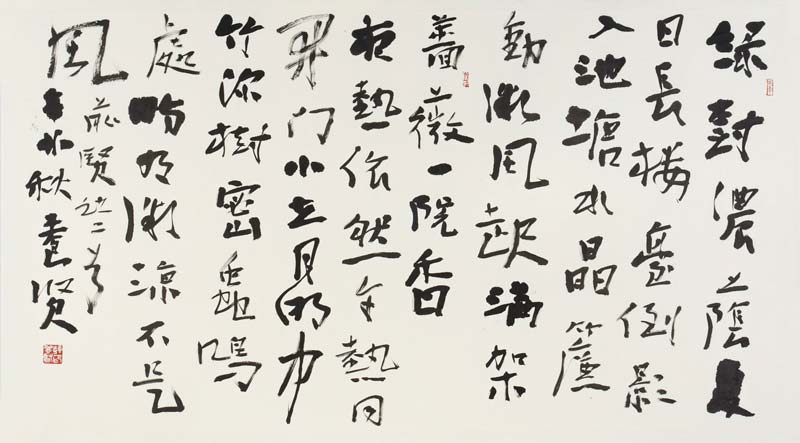 綠樹濃陰夏
日長樓臺倒影
入池塘水晶簾
動微風起滿架
薔薇一院香
夜熱依然午熱同
開門小立月明中
竹深樹密蟲鳴
處時有微涼不是
風
前賢詩二首
秋賢